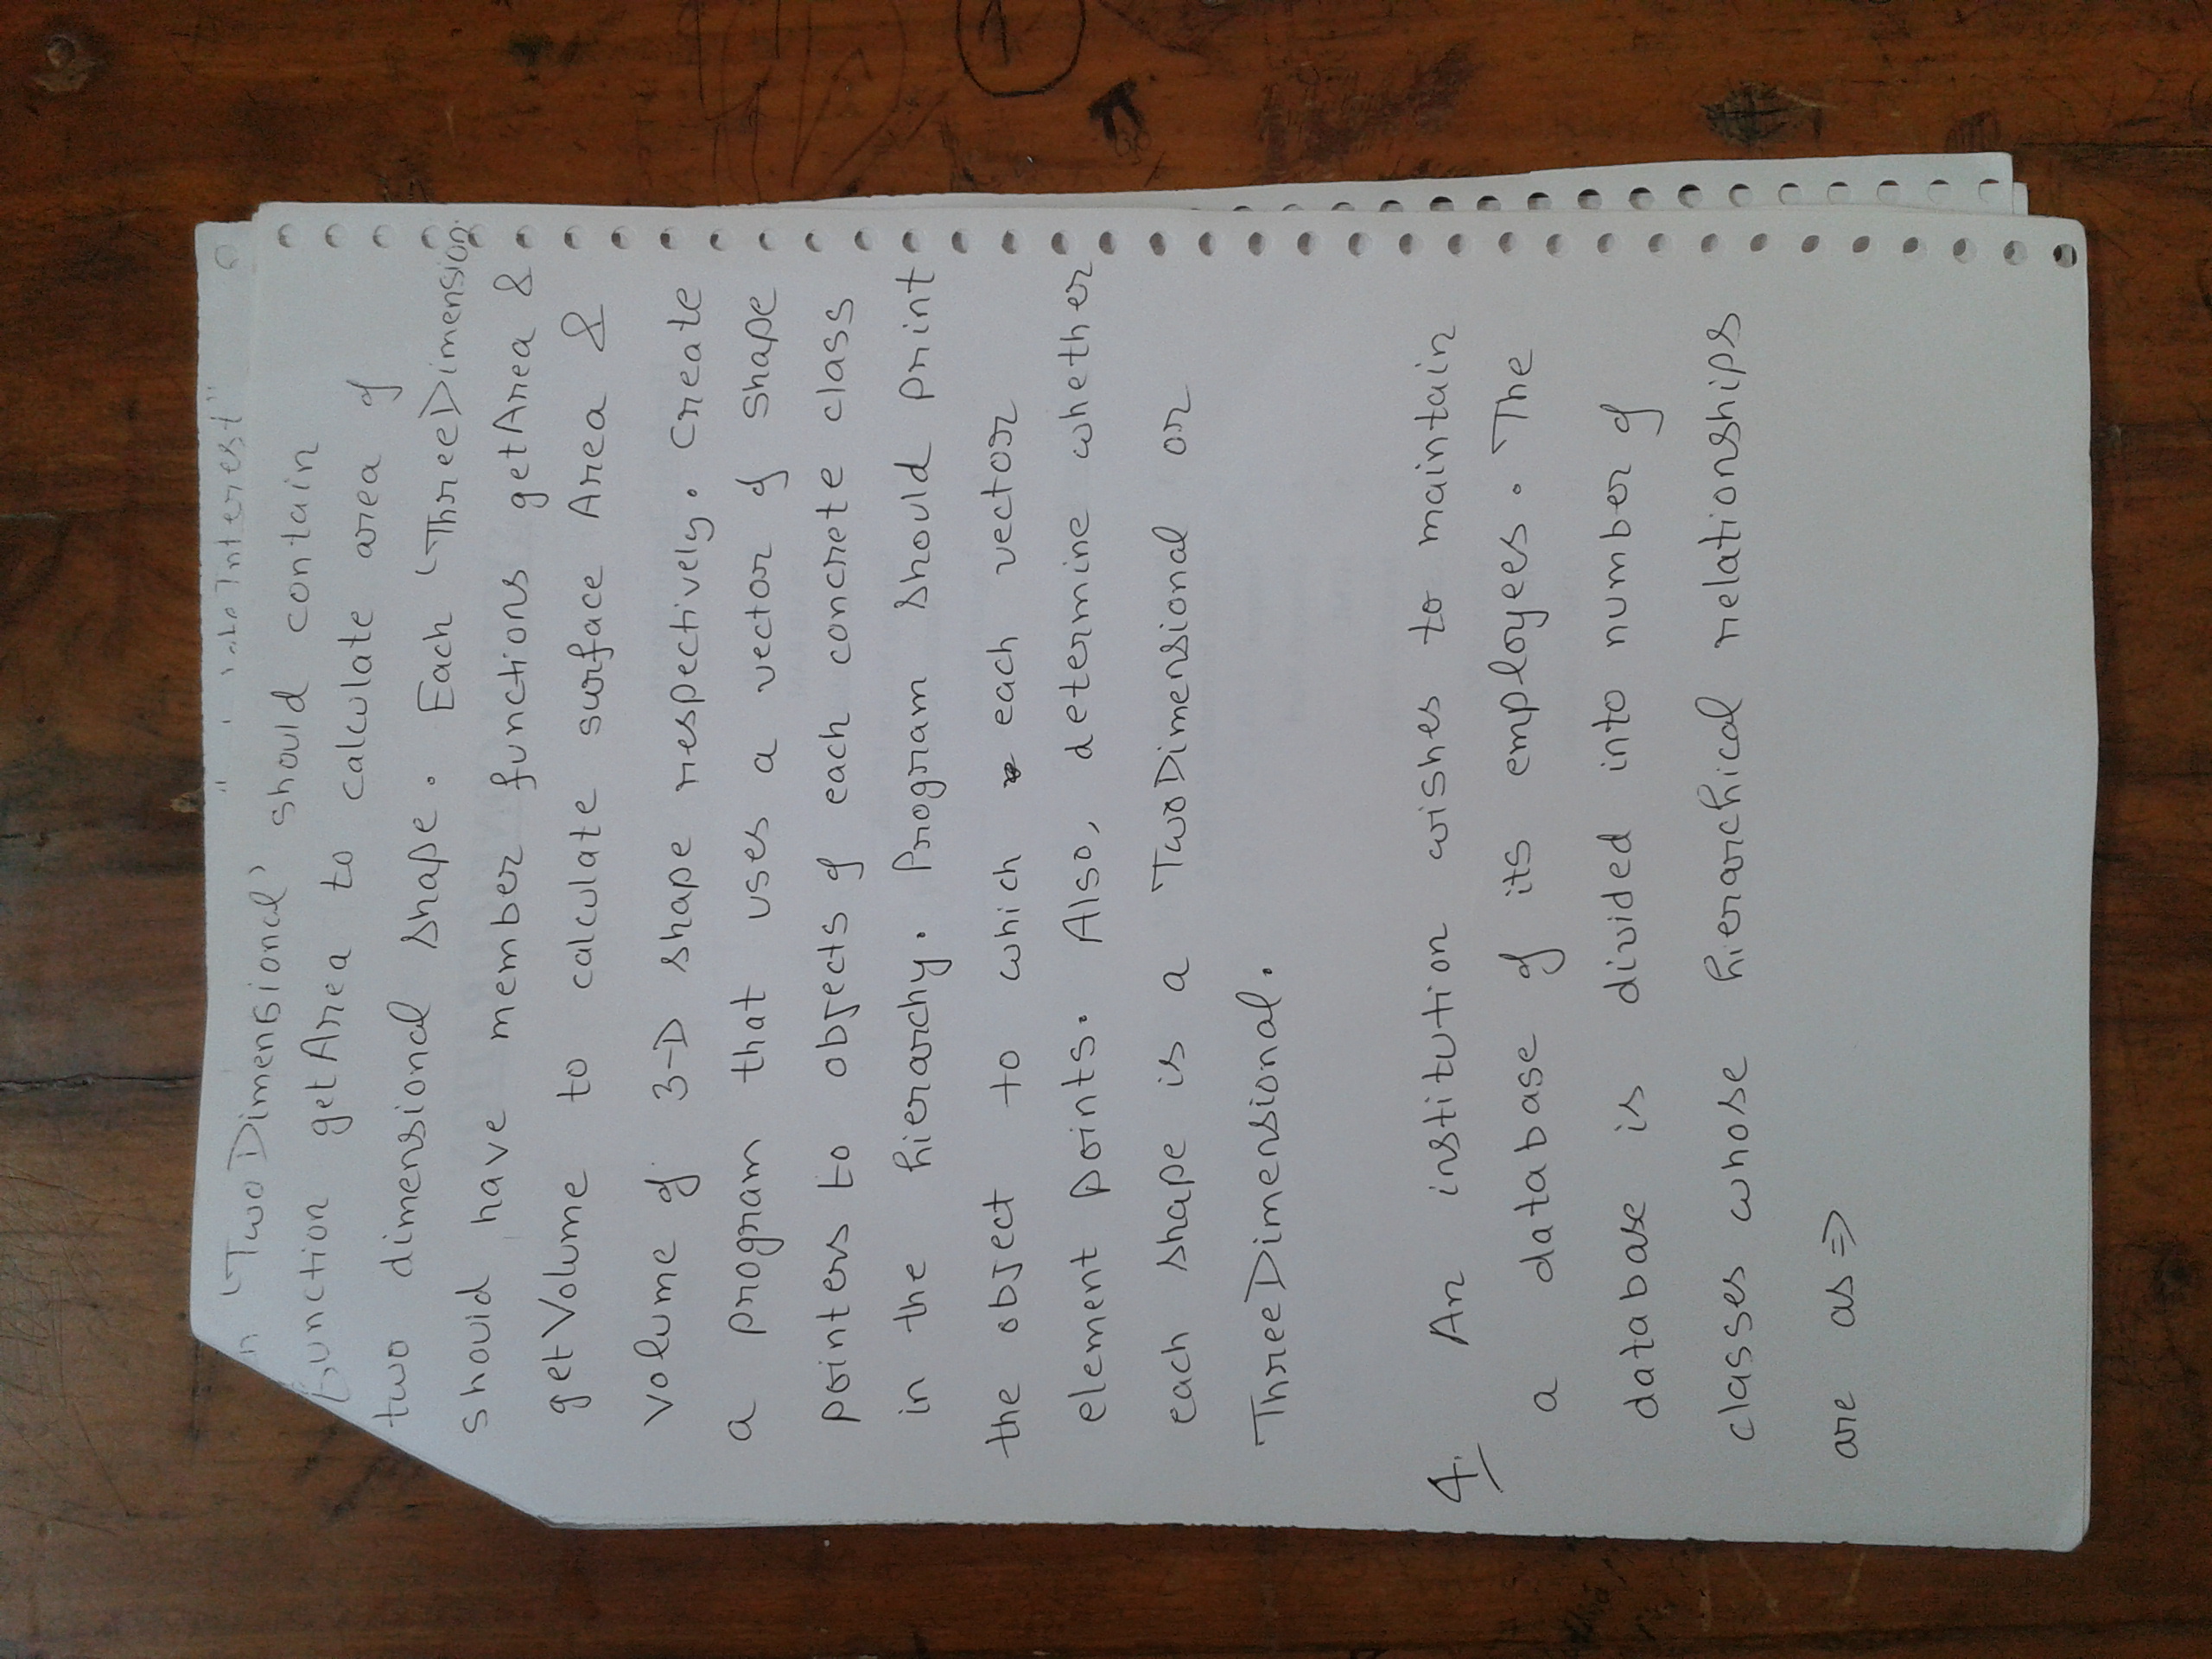 "TwoDimensional" should contain
function getArea to calculate area of
two dimensional shape. Each "ThreeDimension
should have member functions getArea &
getVolume to calculate surface Area &
volume of 3-D shape respectively. Create
a program that uses a vector of shape
pointers to objects of each concrete class
in the hierarchy. Program should print
the object to which each vector
element points. Also, determine whether
each shape is a TwoDimensional or
ThreeDimensional.
4. An institution wishes to maintain
a database of its employees. The
database is divided into number of
classes whose hierarchical relationships
are as ⇒